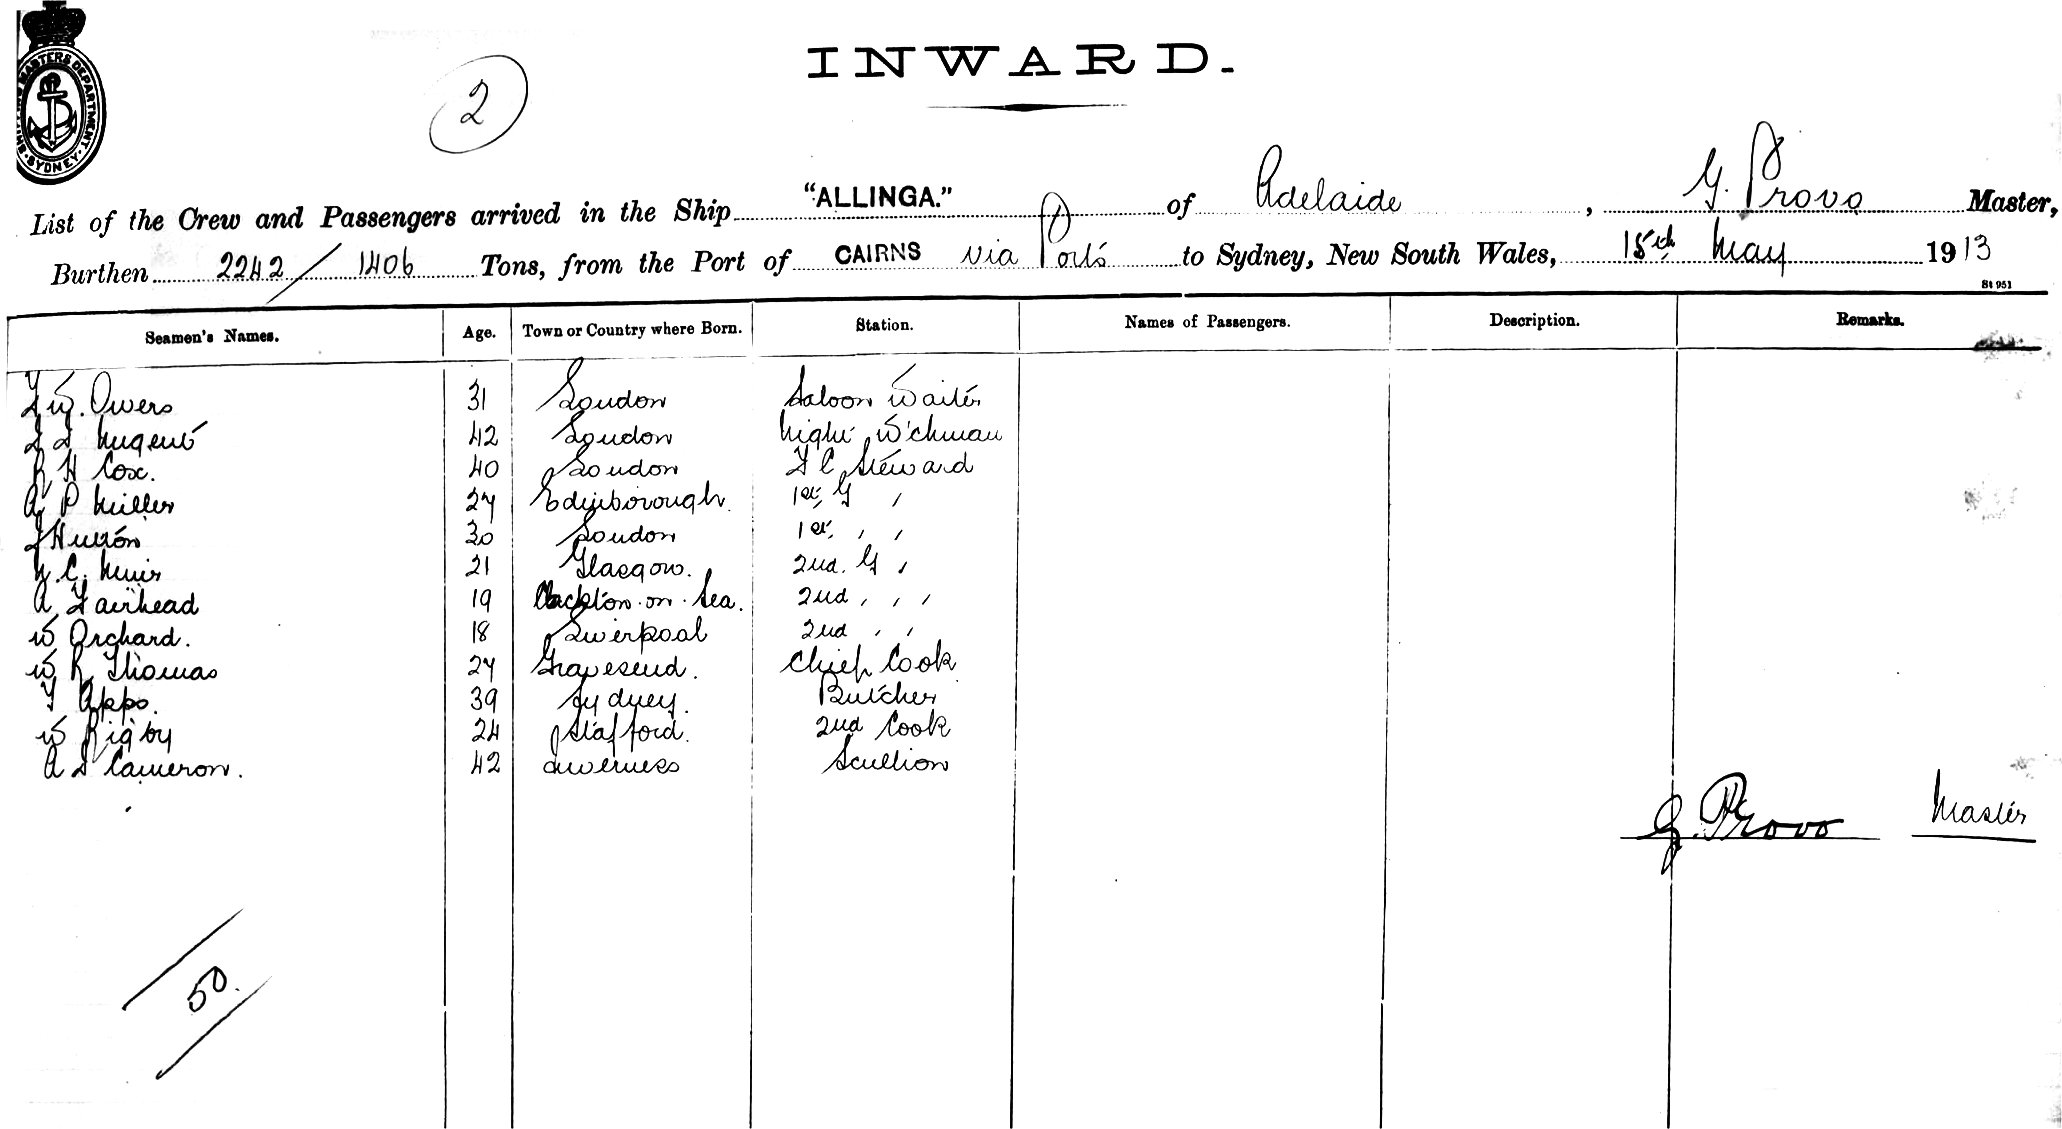 SHIPPING MASTERS DEPARTMENT
SYDNEY
2
INWARD.
List of the Crew and Passengers arrived in the Ship "ALLINGA." of Adelaide, G. Provo Master,
Burthen 2242/1406 Tons, from the Port of CAIRNS via Ports to Sydney, New South Wales, 15th May 1913
St 951
Seamen's Names. Age. Town or Country where Born. Station. Names of Passengers. Description. Remarks.
W. Owers 31 London Saloon Waiter
Nugent 42 London Night W'chman
R H Cox. 40 London F C Steward
A P Miller 27 Edinborough. 1st G "
Hutton 30 London 1st, " "
C. Muir 21 Glasgow. 2nd. G "
A Fairhead 19 Clackton-on-Sea. 2nd " " "
W Orchard. 18 Liverpool 2nd " "
W R Thomas 27 Gravesend. Chief Cook
Apps. 39 Sydney. Butcher
W Rigby 24 Stafford. 2nd Cook
A Cameron. 42 Inverness Scullion
G. Provo Master
50.